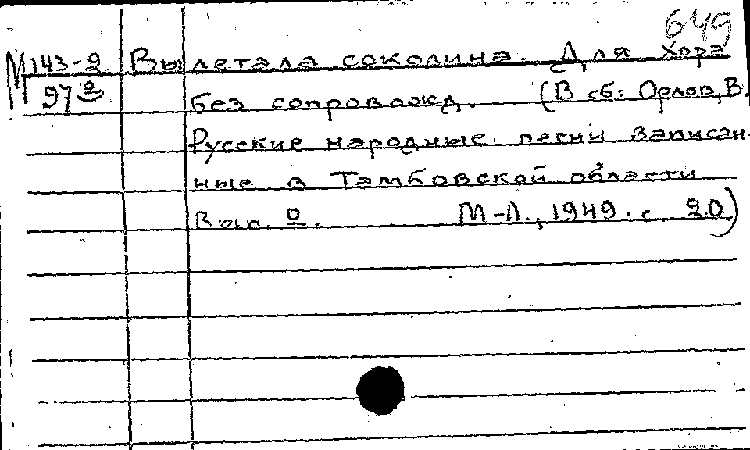 649
М 143-2 Вылетала соколина. Для хора
97 без сопровожд. (В сб: Орлов, В.
Русские народные песни записан-
ные в Тамбовской области
Вып. 2. М-Л., 1949. с. 20)